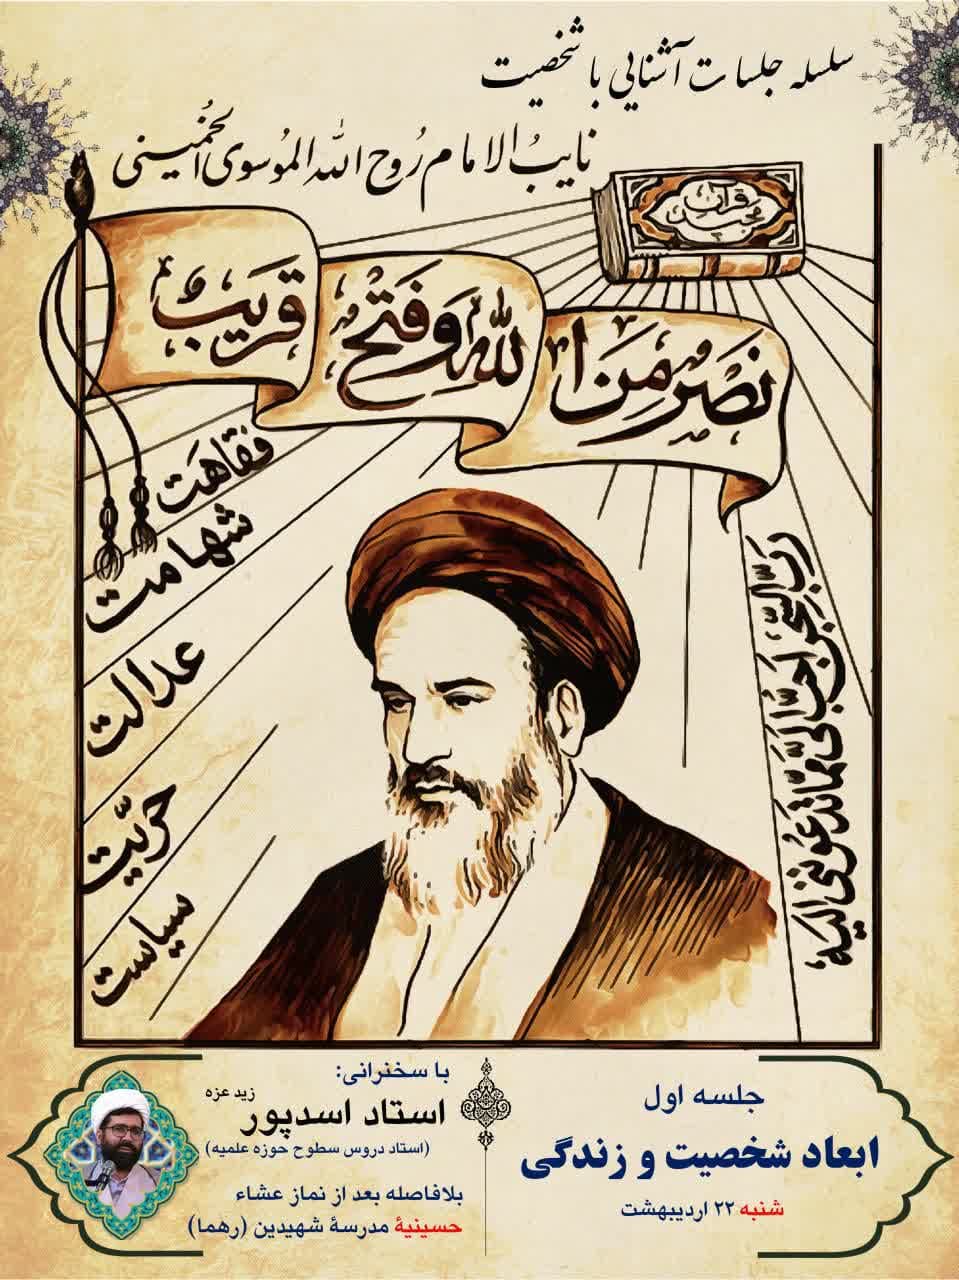 سلسله جلسات آشنایی با شخصیت
نایبُ الامام رُوح اللهِ الموُسوی الخمُینی
قرآن مجید
نَصْرٌ مِنَ اللهِ وَ فَتْحٌ قَریبٌ
فقاهت
شهامت
عدالت
حرّیت
سیاست
رَبِّ السِّجْنُ اَحَبُّ اِلَیَّ مِمّا یَدْعُونَنی اِلَیْهِ
جلسه اول
ابعاد شخصیت و زندگی
شنبه ۲۲ اردیبهشت
با سخنرانی:
استاد اسدپور زید عزه
(استاد دروس سطوح حوزه علمیه)
بلافاصله بعد از نماز عشاء
حسینیهٔ مدرسهٔ شهیدین (رهما)